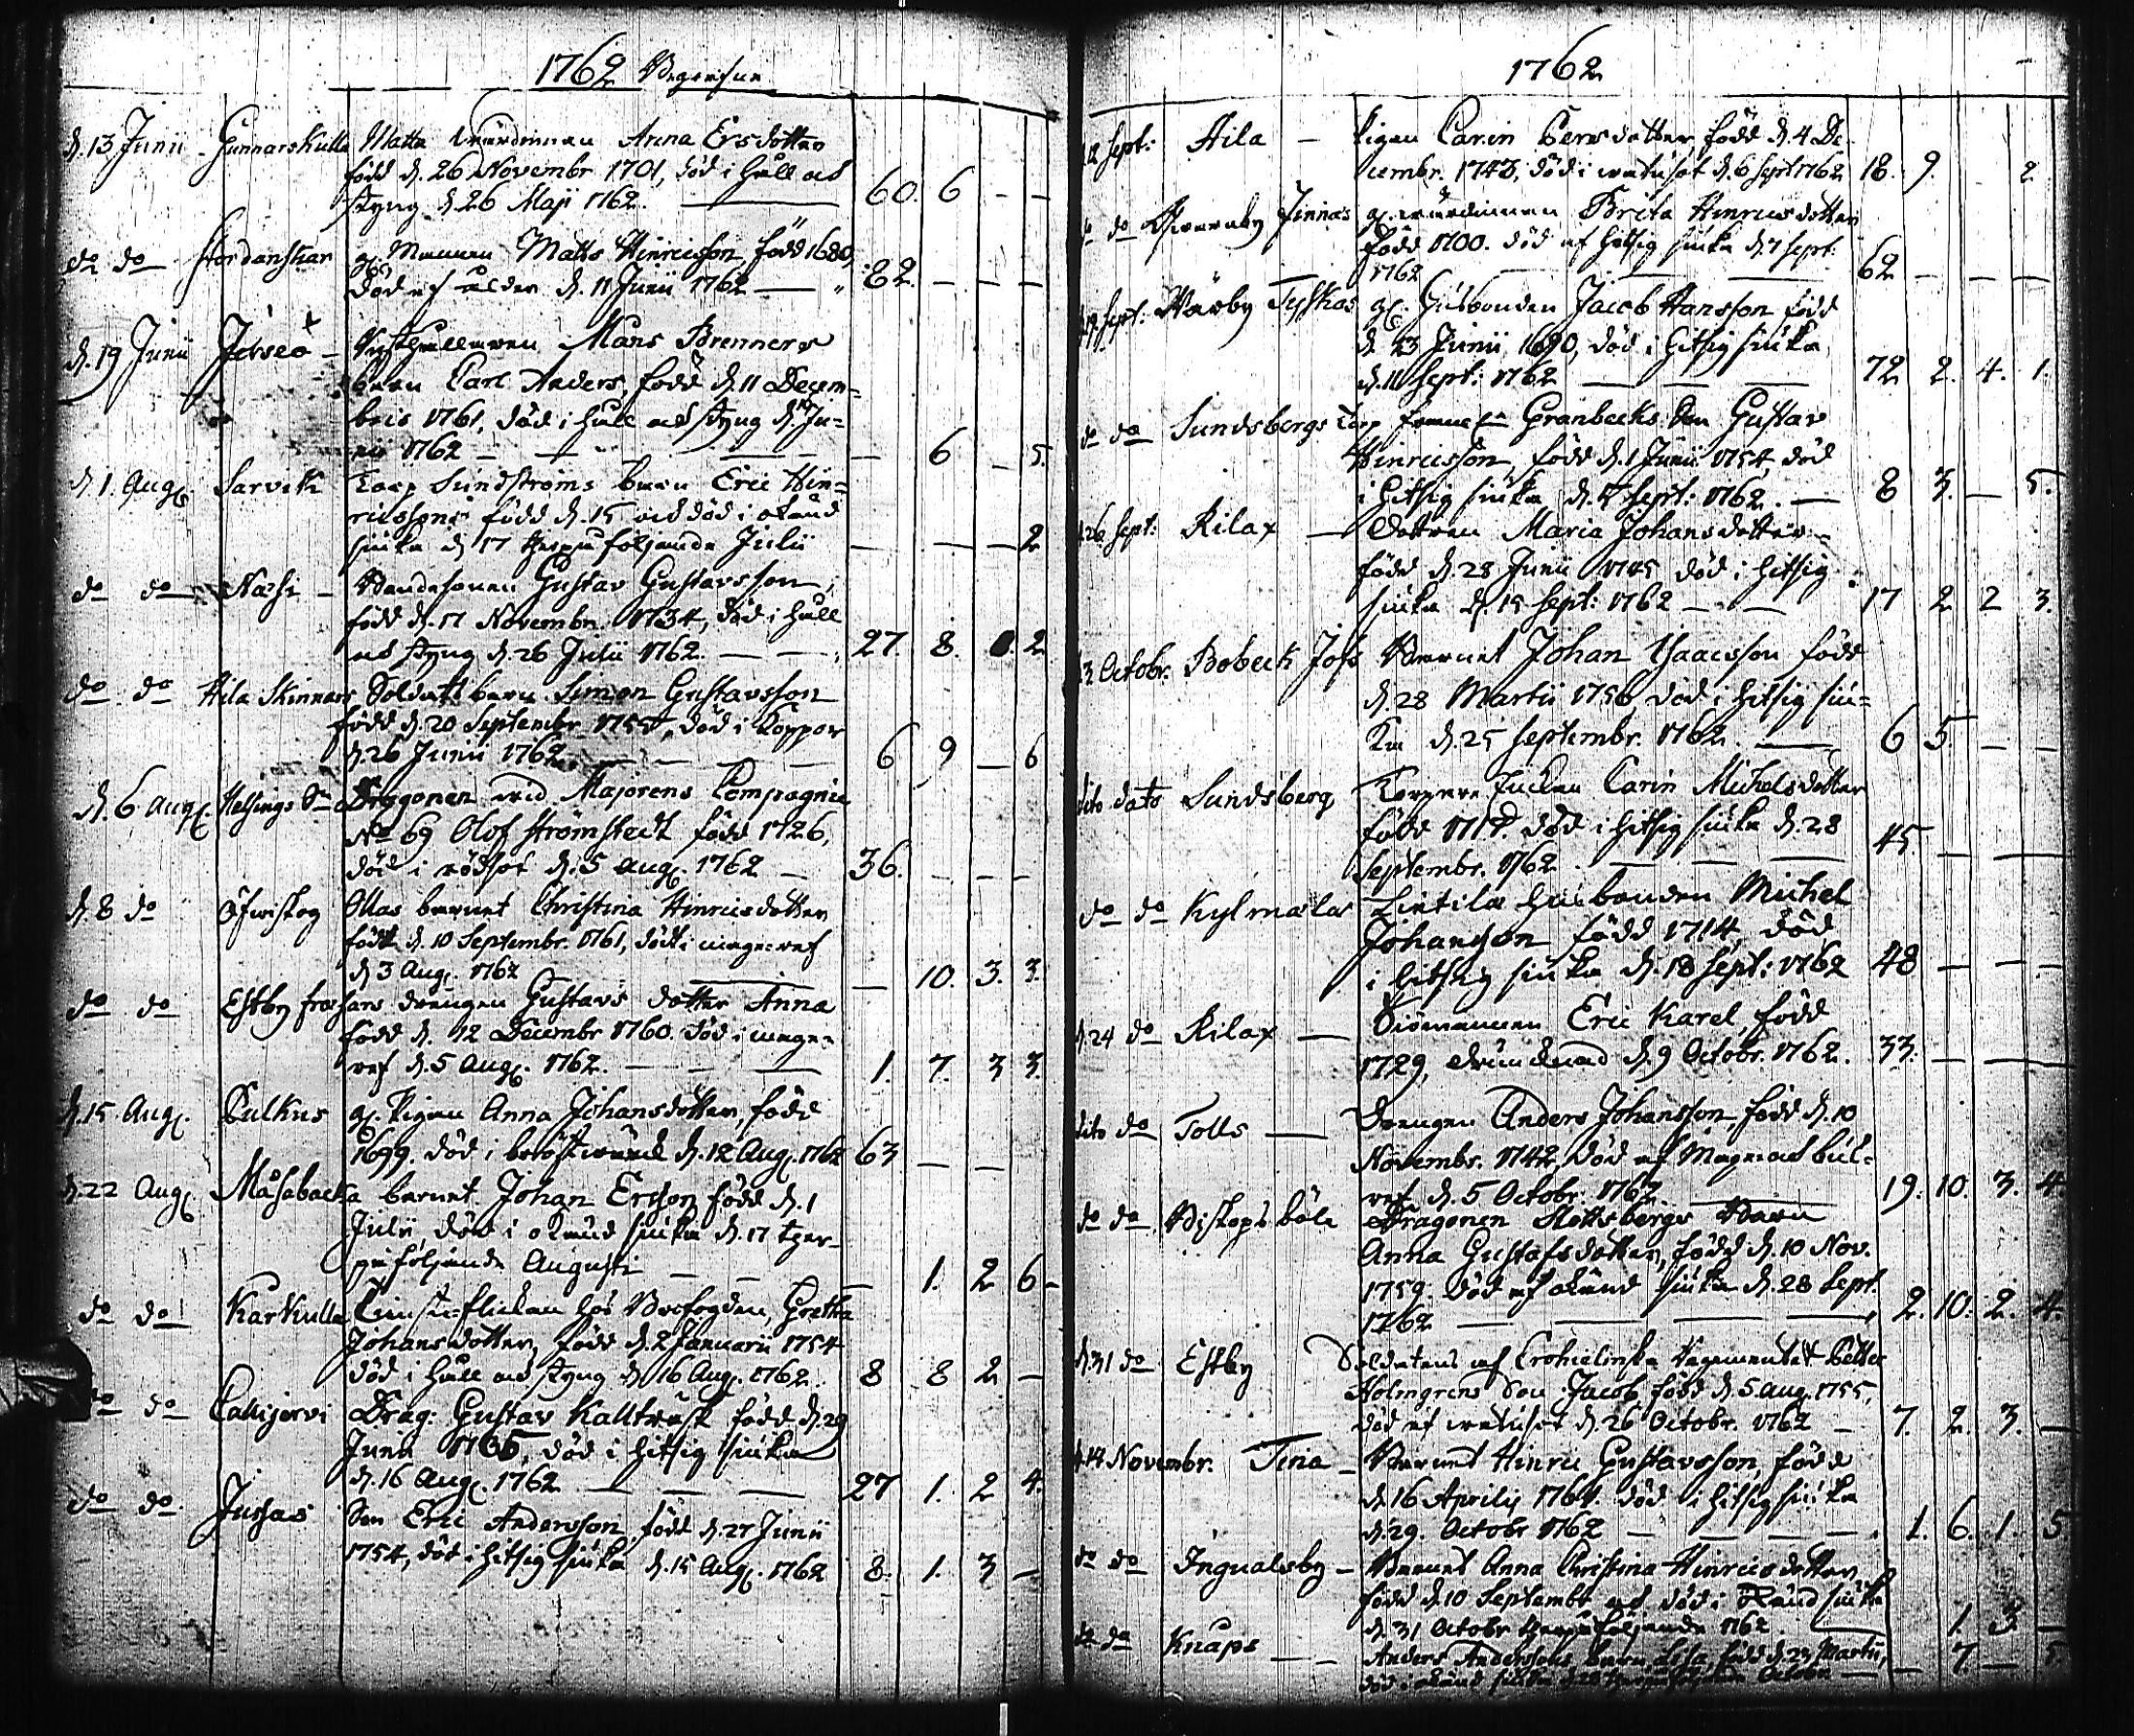 1762 Begrafne
d. 13 Junii Gunnarskulla Matts värdinnan Anna Ersdotter
född d. 26 Novembr 1701, död i håll och
styng d. 26 Maji 1762. 60. 6 - -
do do Stordanskar g. Mannen Matts Hinricsson född 1680,
död af ålder d. 11 Junii 1762 82. - - -
d. 19 Junii Jetseö - Måns Brenners
barn Carl Anders, född d. 11 Decem-
bris 1761, död i håll och styng d. Ju-
nii 1762 - 6 - 5.
d. 1. Aug. Sarvik Torp Sundströms barn Eric Hin-
ricsson född d. 15 och död i okänd
siuka d. 17 therpåföljande Julii - - - 2
do do Näse - Bondesonen Gustav Gustavsson,
född d. 17 Novembr. 1734, död i håll
och styng d. 26 Julii 1762. 27. 8. 2
do do Hila Skinnars Soldats barn Simon Gustavsson
född d. 20 Septembr 1755, död i koppor
d. 26 Junii 1762 6 9 - 6
d. 6 Aug. Helsings Dragonen vid Majorens Compagnie
No 69 Olof Strömstedt född 1726,
död i rödsot d. 5 Aug. 1762 - 36. - - -
d. 8 do Öfwerskog Ollas barnet Christina Hinricsdotter
född d. 10 Septembr. 1761, död i magref
d. 3 Aug. 1762 - 10. 3. 3.
do do Estby drengen Gustavs dotter Anna
född d. 12 Decembr 1760. död i mage-
ref d. 5 Aug. 1762. 1. 7. 3 3.
d. 15 Aug. Pulkus g. Pigan Anna Johansdotter, född
1699. död i bröstwärk d. 12 Aug. 1762 63 - -
d. 22 Aug. Måsabacka barnet Johan Ersson född d. 1
Julii, död i okänd siuka d. 17 ther-
påföljande Augusti - 1. 2 6 -
do do Karkulla flickan hos Brofogden, Gretha
Johansdotter, född d. 2 Januarii 1754
död i håll och styng d. 16 Aug. 1762. 8 8 2 -
do do Callijervi Drag: Gustav Kallträsk född d. 29
Junii 1735, död i hitsig siuka
d. 16 Aug. 1762 27 1. 2 4.
do do Jussas Son Eric Andersson, född d. 27 Junii
1754, död i hitsig siuka d. 15 Aug. 1762 8. 1. 3 -
1762
12 Sept: Hila - Pigan Carin Persdotter född d. 4 De-
cembr. 1743, död i d. 6 Sept 1762 18. 9. 2
do do Finnäs g. värdinnan Brita Hinricsdotter
född 1700. död af hitsig siuka d. 7 Sept:
1762 62 - - -
d. 19 Sept: Wärby Tyskas g. Husbonden Jacob Hansson född
d. 23 Junii 1690, död i hitsig siuka
d. 11 Sept: 1762 72 2. 4. 1.
do do Sundsbergs Torp Granbecks son Gustav
Hinricsson, född d. 1 Junii 1754, död
i hitsig siuka d. Sept: 1762. 8 3. - 5.
d. 26 Sept: Rilax - dottren Maria Johansdotter
född d. 28 Junii 1745 död i hitsig
siuka d. 15 Sept: 1762 17 2 2 3.
d. 3 Octobr. Bobeck Jofs Barnet Johan Isaacsson född
d. 28 Martii 1756 död i hitsig siu-
ka d. 25 Septembr. 1762. 6 5. - -
dito dato Sundsberg Torpare Enckan Carin Michelsdotter
född 1717 död i hitsig siuka d. 28
Septembr. 1762. 45. - -
do do Kylmälar Lietila husbonden Michel
Johansson född 1714, död
i hitsig siuka d. 18 Sept: 1762 48 - - -
d. 24 do Rilax - Siömannen Eric Karel, född
1729, drunknad d. 9 Octobr. 1762. 33. - - -
dito do Tolls - Drengen Anders Johansson, född d. 10
Novembr. 1742, död af Mage och buk-
ref d. 5 Octobr. 1762. 19. 10. 3. 4.
do do Biskops böle Dragonen Slottsbergs Barn
Anna Gustafsdotter, född d. 10 Nov.
1759. död af okänd siuka d. 28 Sept.
1762 2. 10. 2. 4.
d. 31 do Estby Soldatens af Regementet Petter
Holmgrens Son Jacob född d. 5. Aug. 1755,
död af d. 26 Octobr. 1762 - 7. 2. 3. -
d. 14 Novembr. Tina - Barnet Hinric Gustavsson, född
d. 16 Aprilis 1761. död i hitsig siuka
d. 29. Octobr 1762 1. 6. 1. 5
do do Ingvalsby - Barnet Anna Christina Hinricsdotter
född d. 10 Septembr och död i okänd siuka
d. 31 Octobr therpåföljande 1762 1. 3. -
do do Knaps - - Anders Anderssons barn Lisa född d. 23 Martii,
död i okänd siuka Octobr. - - 7. - 5.